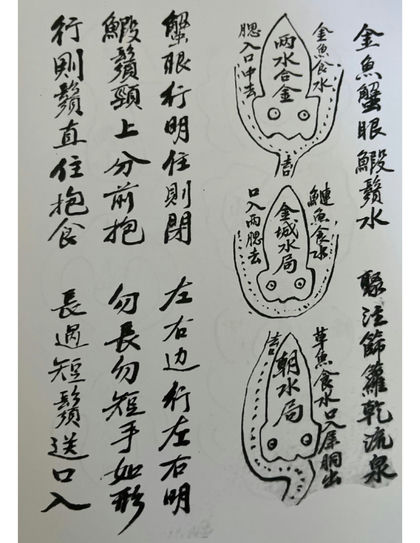 金魚蟹眼鰕鬚水 聚注篩籮乾流泉
金魚食水
腮入口冲去
兩水合金
吉
鰱魚食水
口入兩腮去
金城水局
草魚食水口入屎胐出
朝水局
吉
蟹眼行明住則閉 左右边行左右明
鰕鬚頸上分前抱 勿長勿短手如形
行則鬚直住抱食 長過短鬚送口入